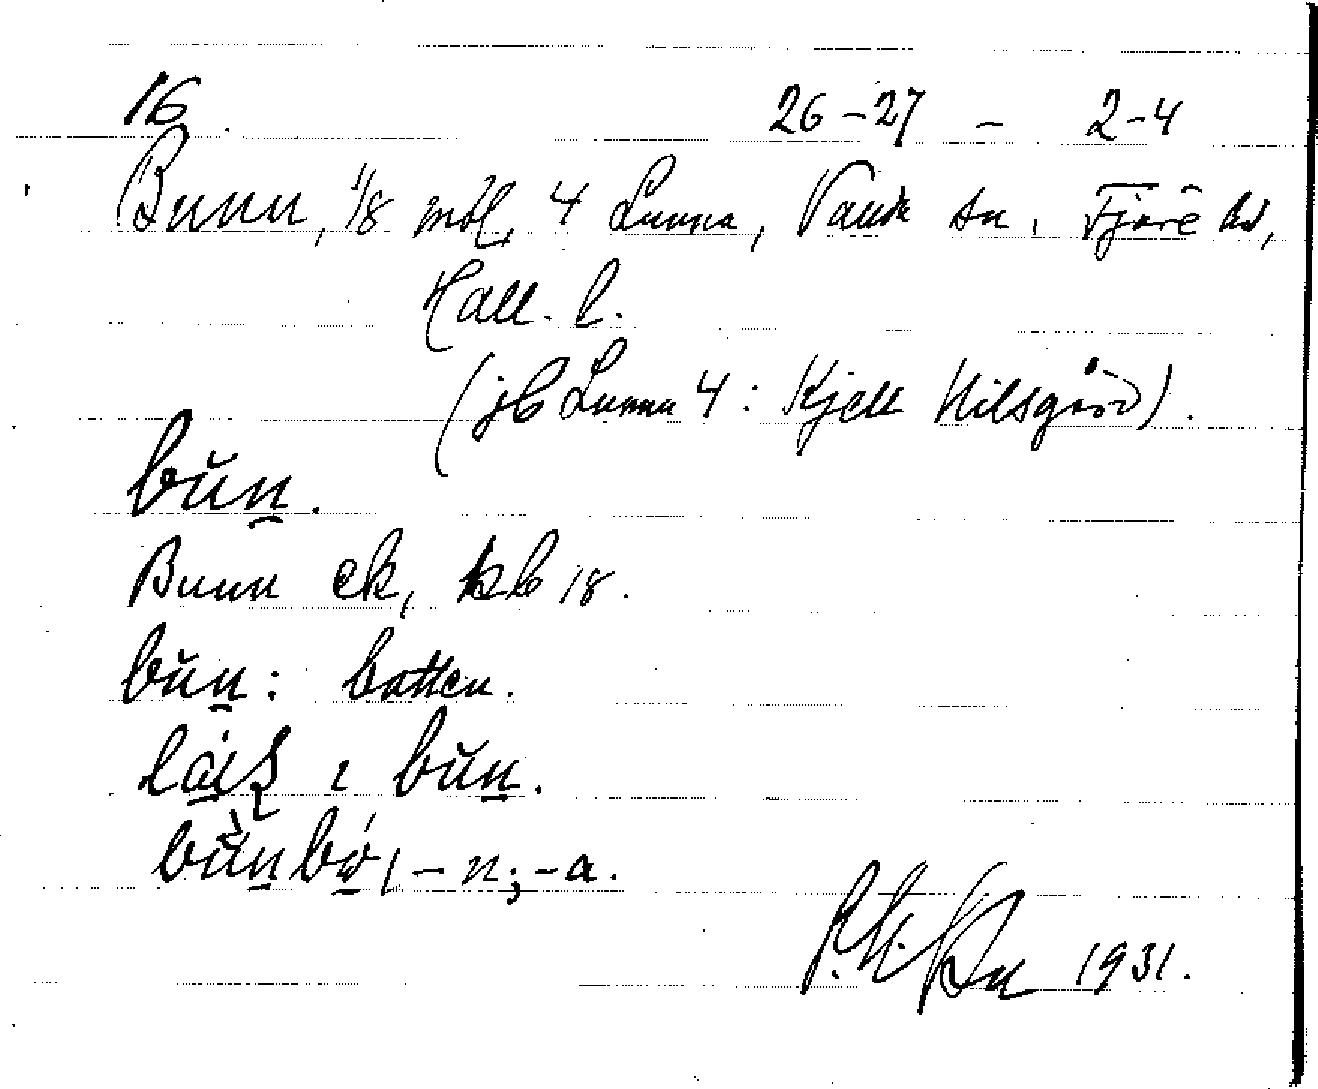 16. 26-27 - 2-4
Bunn, 1/8 mtl, 4 Lunna, Vauk sn, Fjäre hd,
Hall. l.
(jb Lunna 4: Kjell Nilsgård).
bŭn̲.
Bunn ek, kb 18.
bŭn̲: botten.
ı bŭn̲.
-n; -a.
1931.